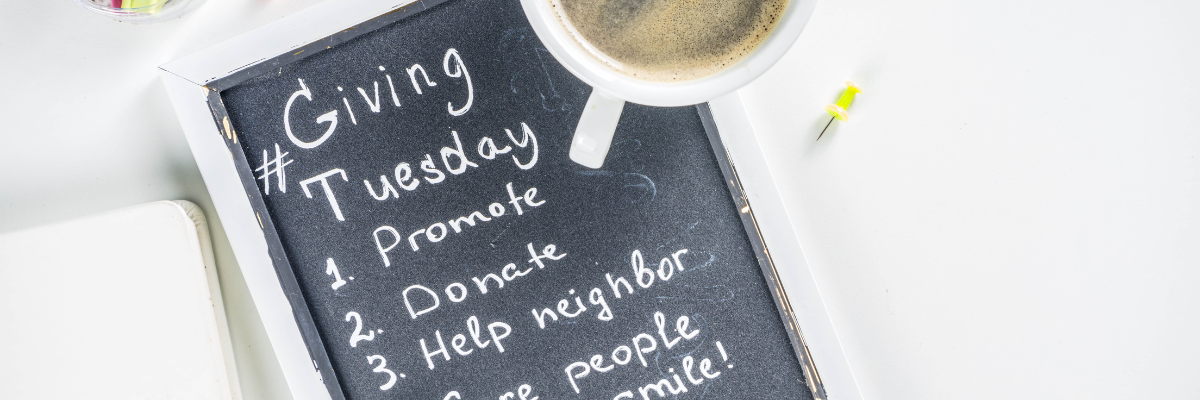 #Giving
Tuesday
1. Promote
2. Donate
3. Help neighbor
people
smile!